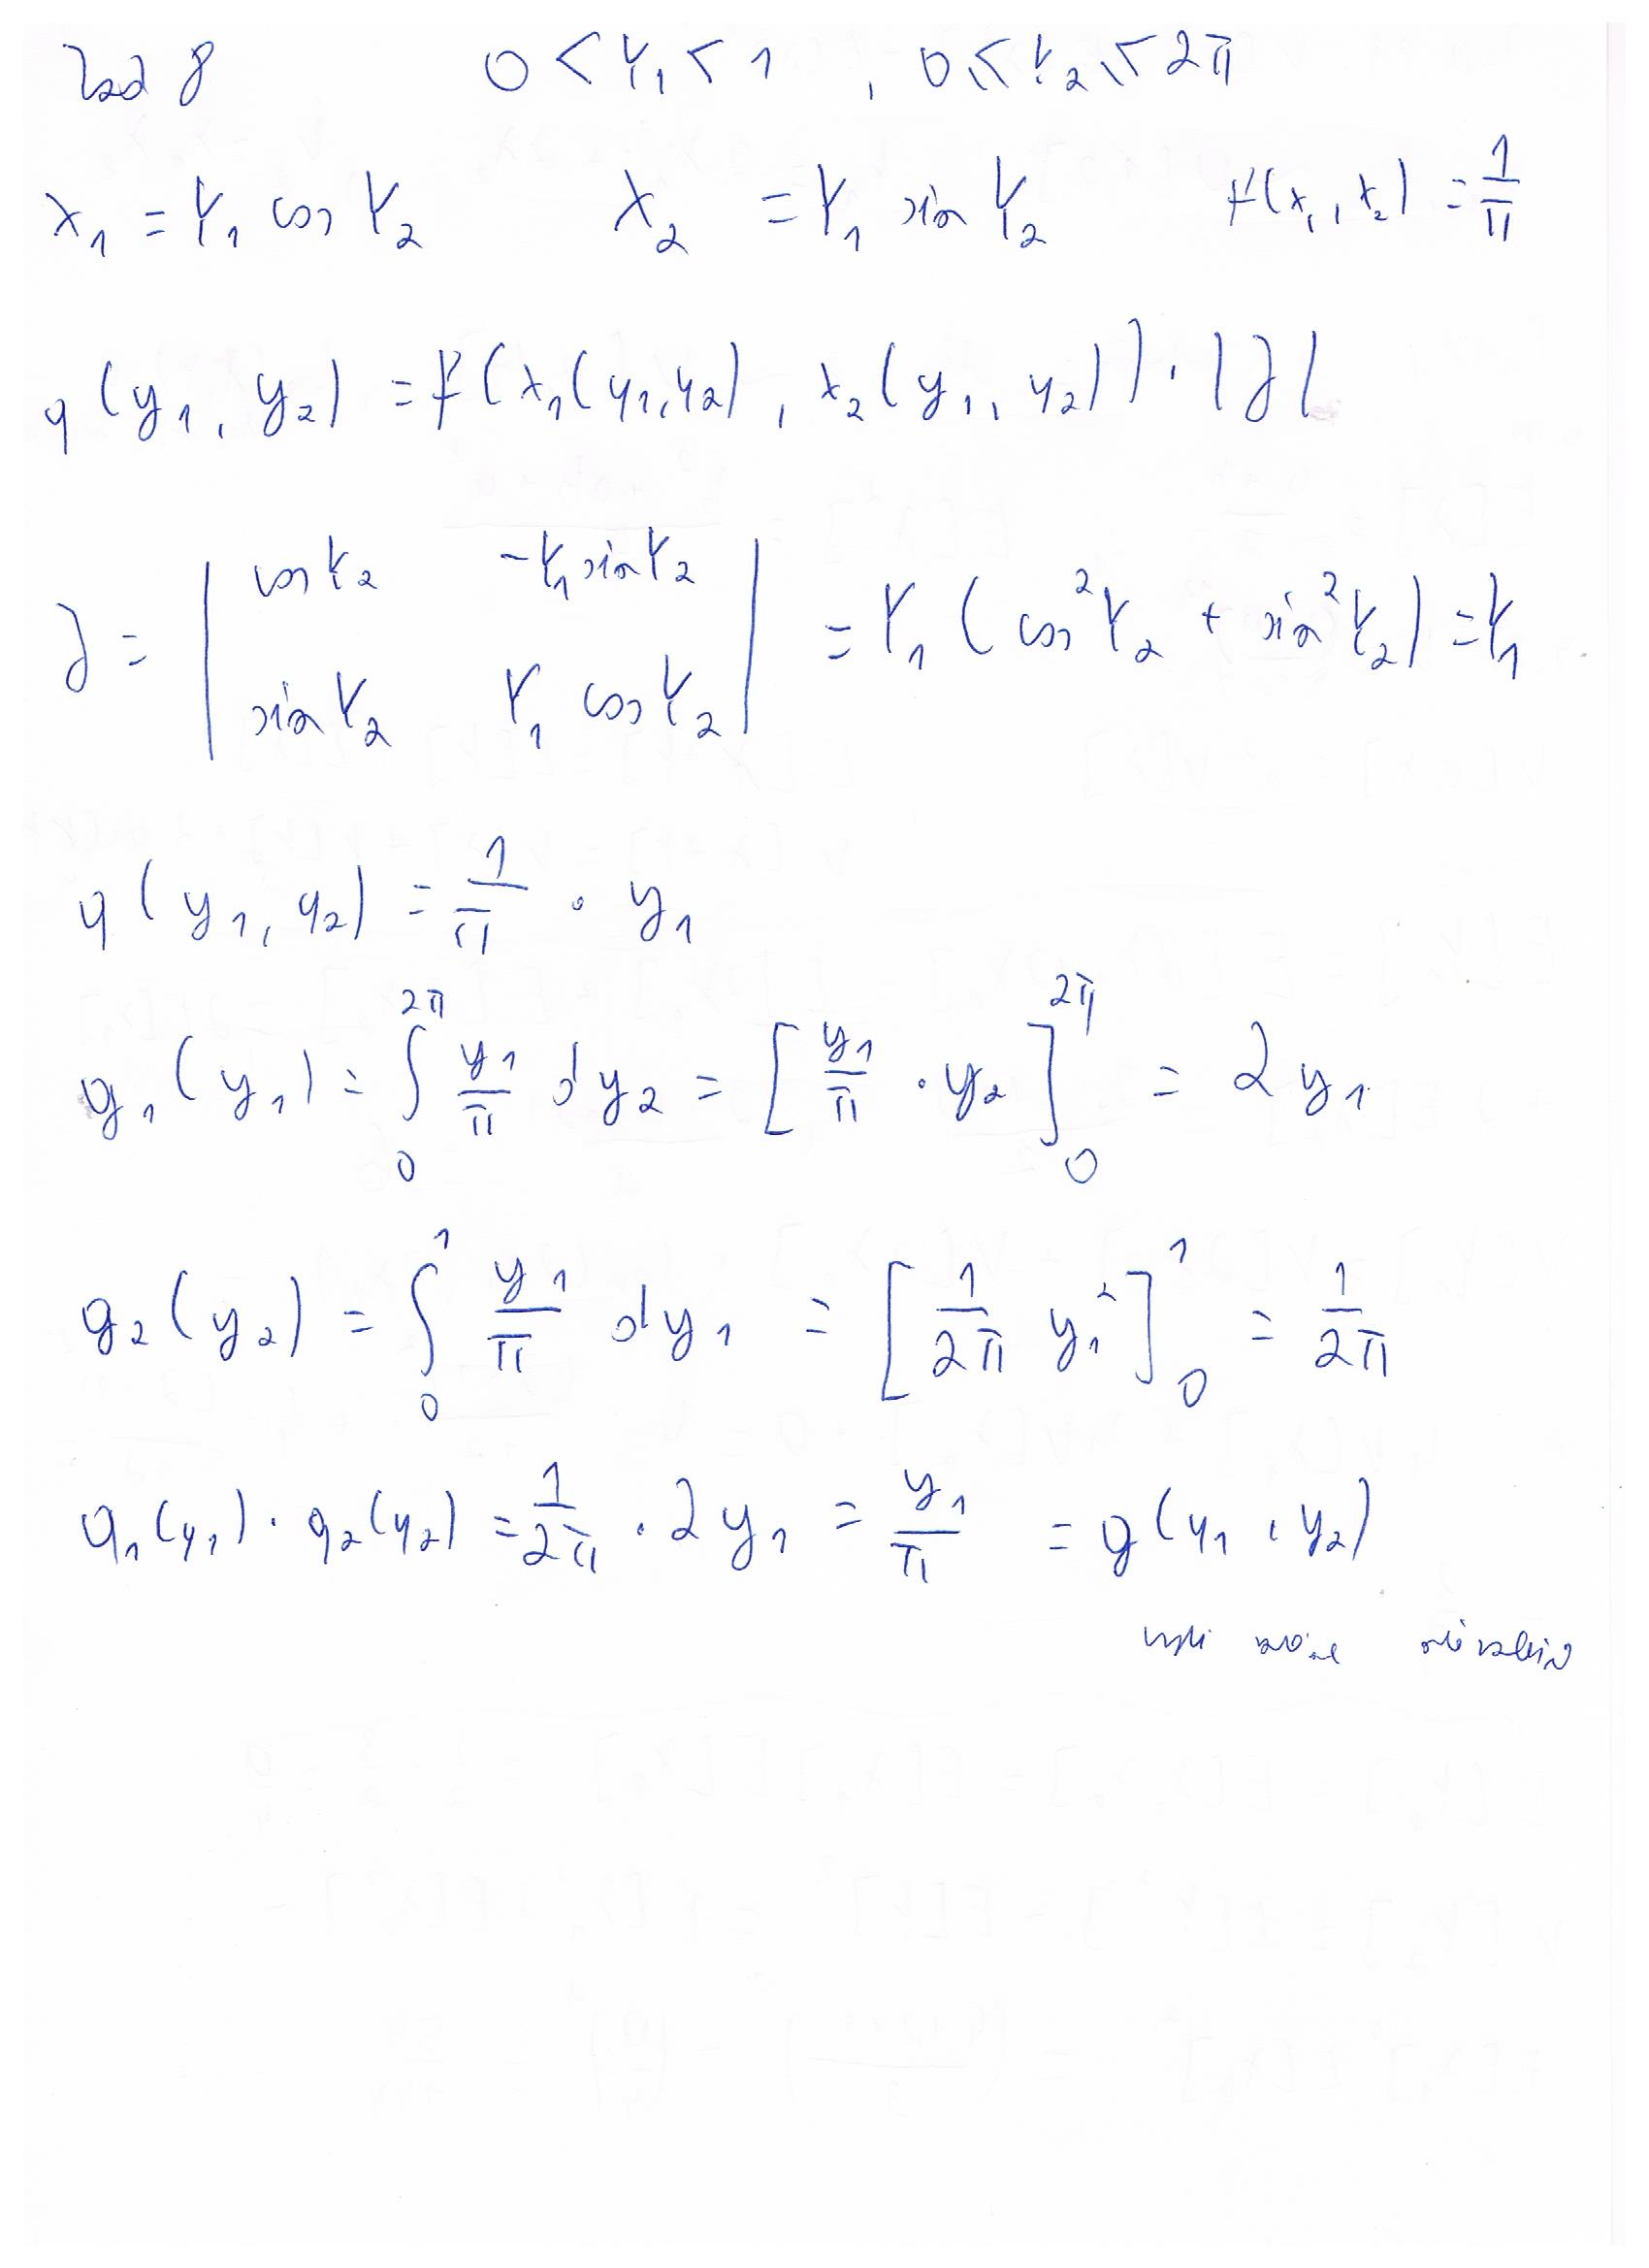 Zad 8 0 < Y₁ < 1 , 0 ≤ Y₂ ≤ 2π
X₁ = Y₁ cos Y₂ X₂ = Y₁ sin Y₂ f(x₁, x₂) = 1/π
g(y₁, y₂) = f(x₁(y₁, y₂), x₂(y₁, y₂)) · |J|
J = | cos Y₂ -Y₁ sin Y₂ ; sin Y₂ Y₁ cos Y₂ | = Y₁ (cos² Y₂ + sin² Y₂) = Y₁
g(y₁, y₂) = 1/π · y₁
g₁(y₁) = ∫₀^2π y₁/π dy₂ = [y₁/π · y₂]₀^2π = 2y₁
g₂(y₂) = ∫₀^1 y₁/π dy₁ = [1/2π y₁²]₀^1 = 1/2π
g₁(y₁) · g₂(y₂) = 1/2π · 2y₁ = y₁/π = g(y₁, y₂)